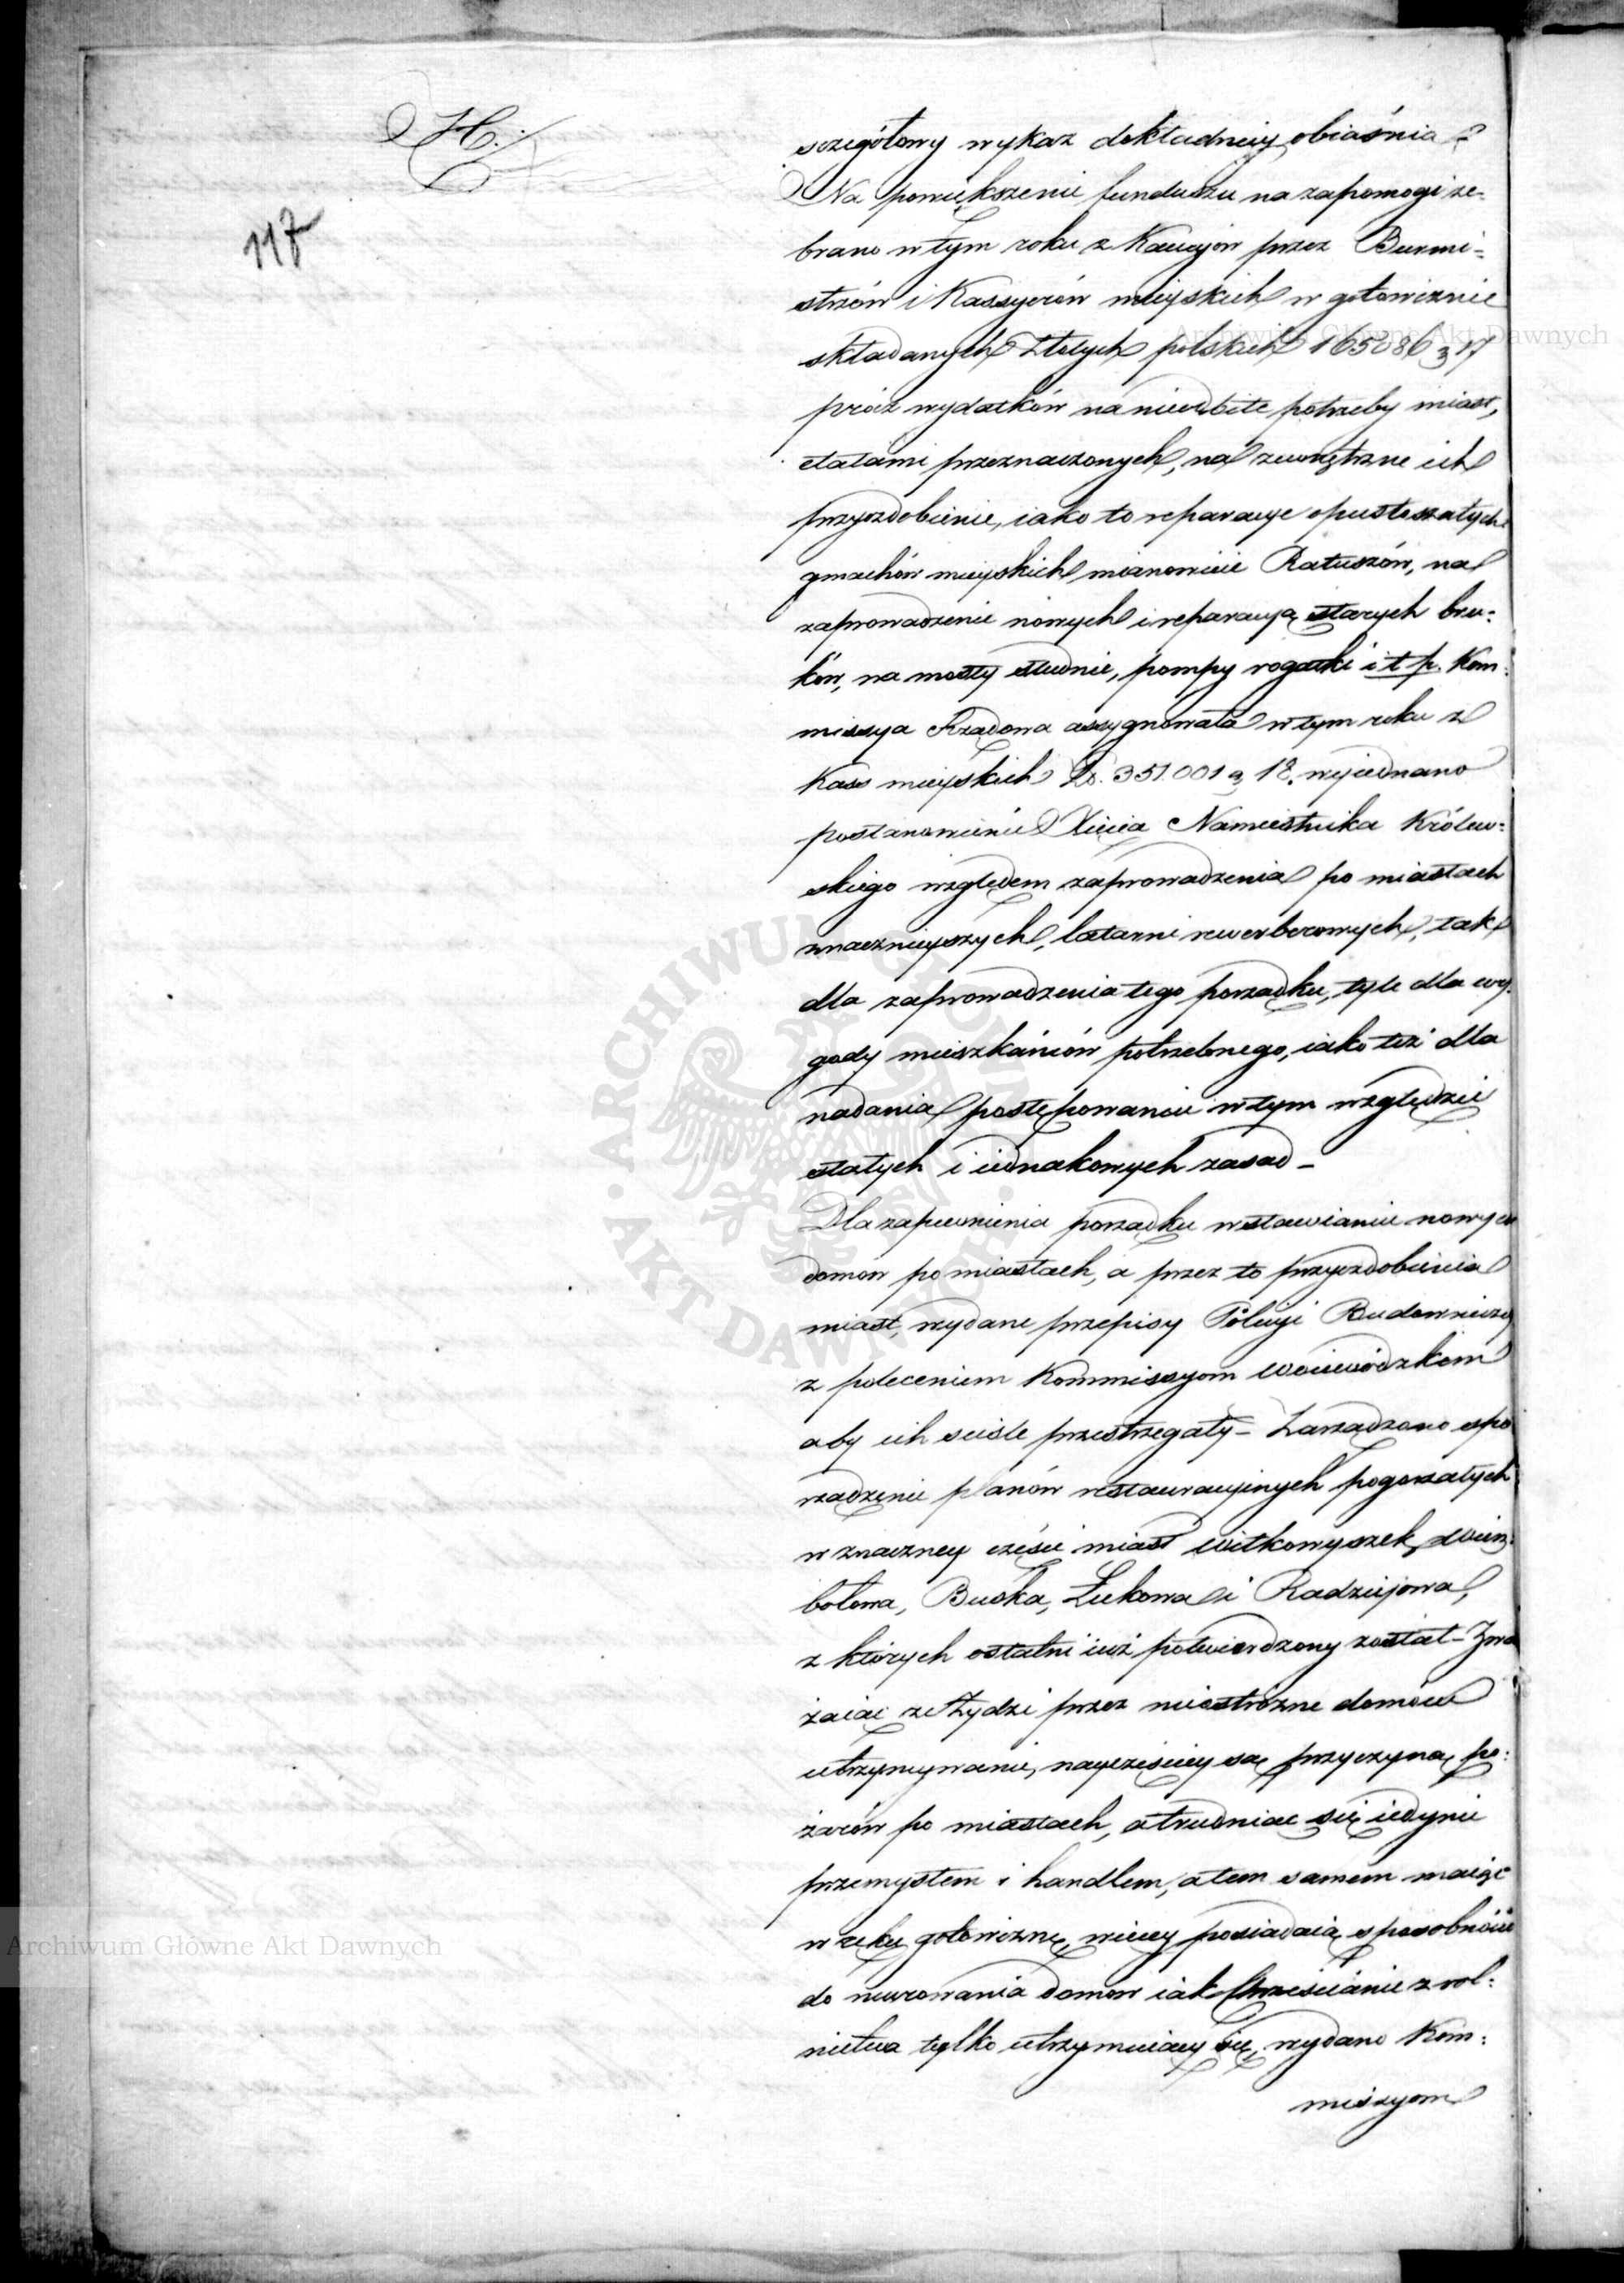 H.
117
szczegółowy wykaz dokładniey obiaśnia
Na powiększenie funduszu na zapomogi ze-
brano w tym roku z Kaucyów przez Burmi-
strzów i Kassyerów mieyskich w gotowiznie
składanych Złotych polskich 165086 3 17
prócz wydatków na nieodbite potrzeby miast,
etatami przeznaczonych, na zewnętrzne ich
przyozdobienie, iako to reparacye opustoszałych
gmachów mieyskich mianowicie Ratuszów, na
zaprowadzenie nowych i reparacyą starych bru-
ków, na mosty studnie, pompy rogatki i t p. Kom-
missya Rządowa assygnowała w tym roku z
Kass mieyskich Zł. 351.001 g 18. wyiednano
postanowienie Xięcia Namiestnika Królew-
skiego względem zaprowadzenia po miastach
znacznieyszych, latarni rewerberowych, tak
dla zaprowadzenia tego porządku, tyle dla wy-
gody mieszkańców potrzebnego, iako też dla
nadania postępowaniu w tym względzie
stałych i iednakowych zasad -
Dla zapewnienia porządku w stawianiu nowych
domow po miastach, a przez to przyozdobienia
miast, wydane przepisy Policyi Budowniczey
z poleceniem Kommissyom Woiewódzkim
aby ich sciśle przestrzegały - Zarządzono spo
rządzenie planów restauracyinych pogorzałych
w znaczney części miast Wiłkowyszek, Wierz-
bołowa, Buska, Łukowa i Radziejowa,
z których ostatni iuż potwierdzony został - Zwa
żaiąc ze Żydzi przez nieostrożne domów
utrzymywanie, nayczęściey są przyczyną po-
żarów po miastach, a trudniąc się iedynie
przemysłem i handlem, a tem samem maiąc
w ręku gotowiznę, więcey posiadaią sposobności
do murowania domow iak Chrześcianie z rol-
nictwa tylko utrzymuiący się, wydano Kom-
missyom
Archiwum Główne Akt Dawnych
Archiwum Główne Akt Dawnych
ARCHIWUM GŁÓWNE · AKT DAWNYCH ·